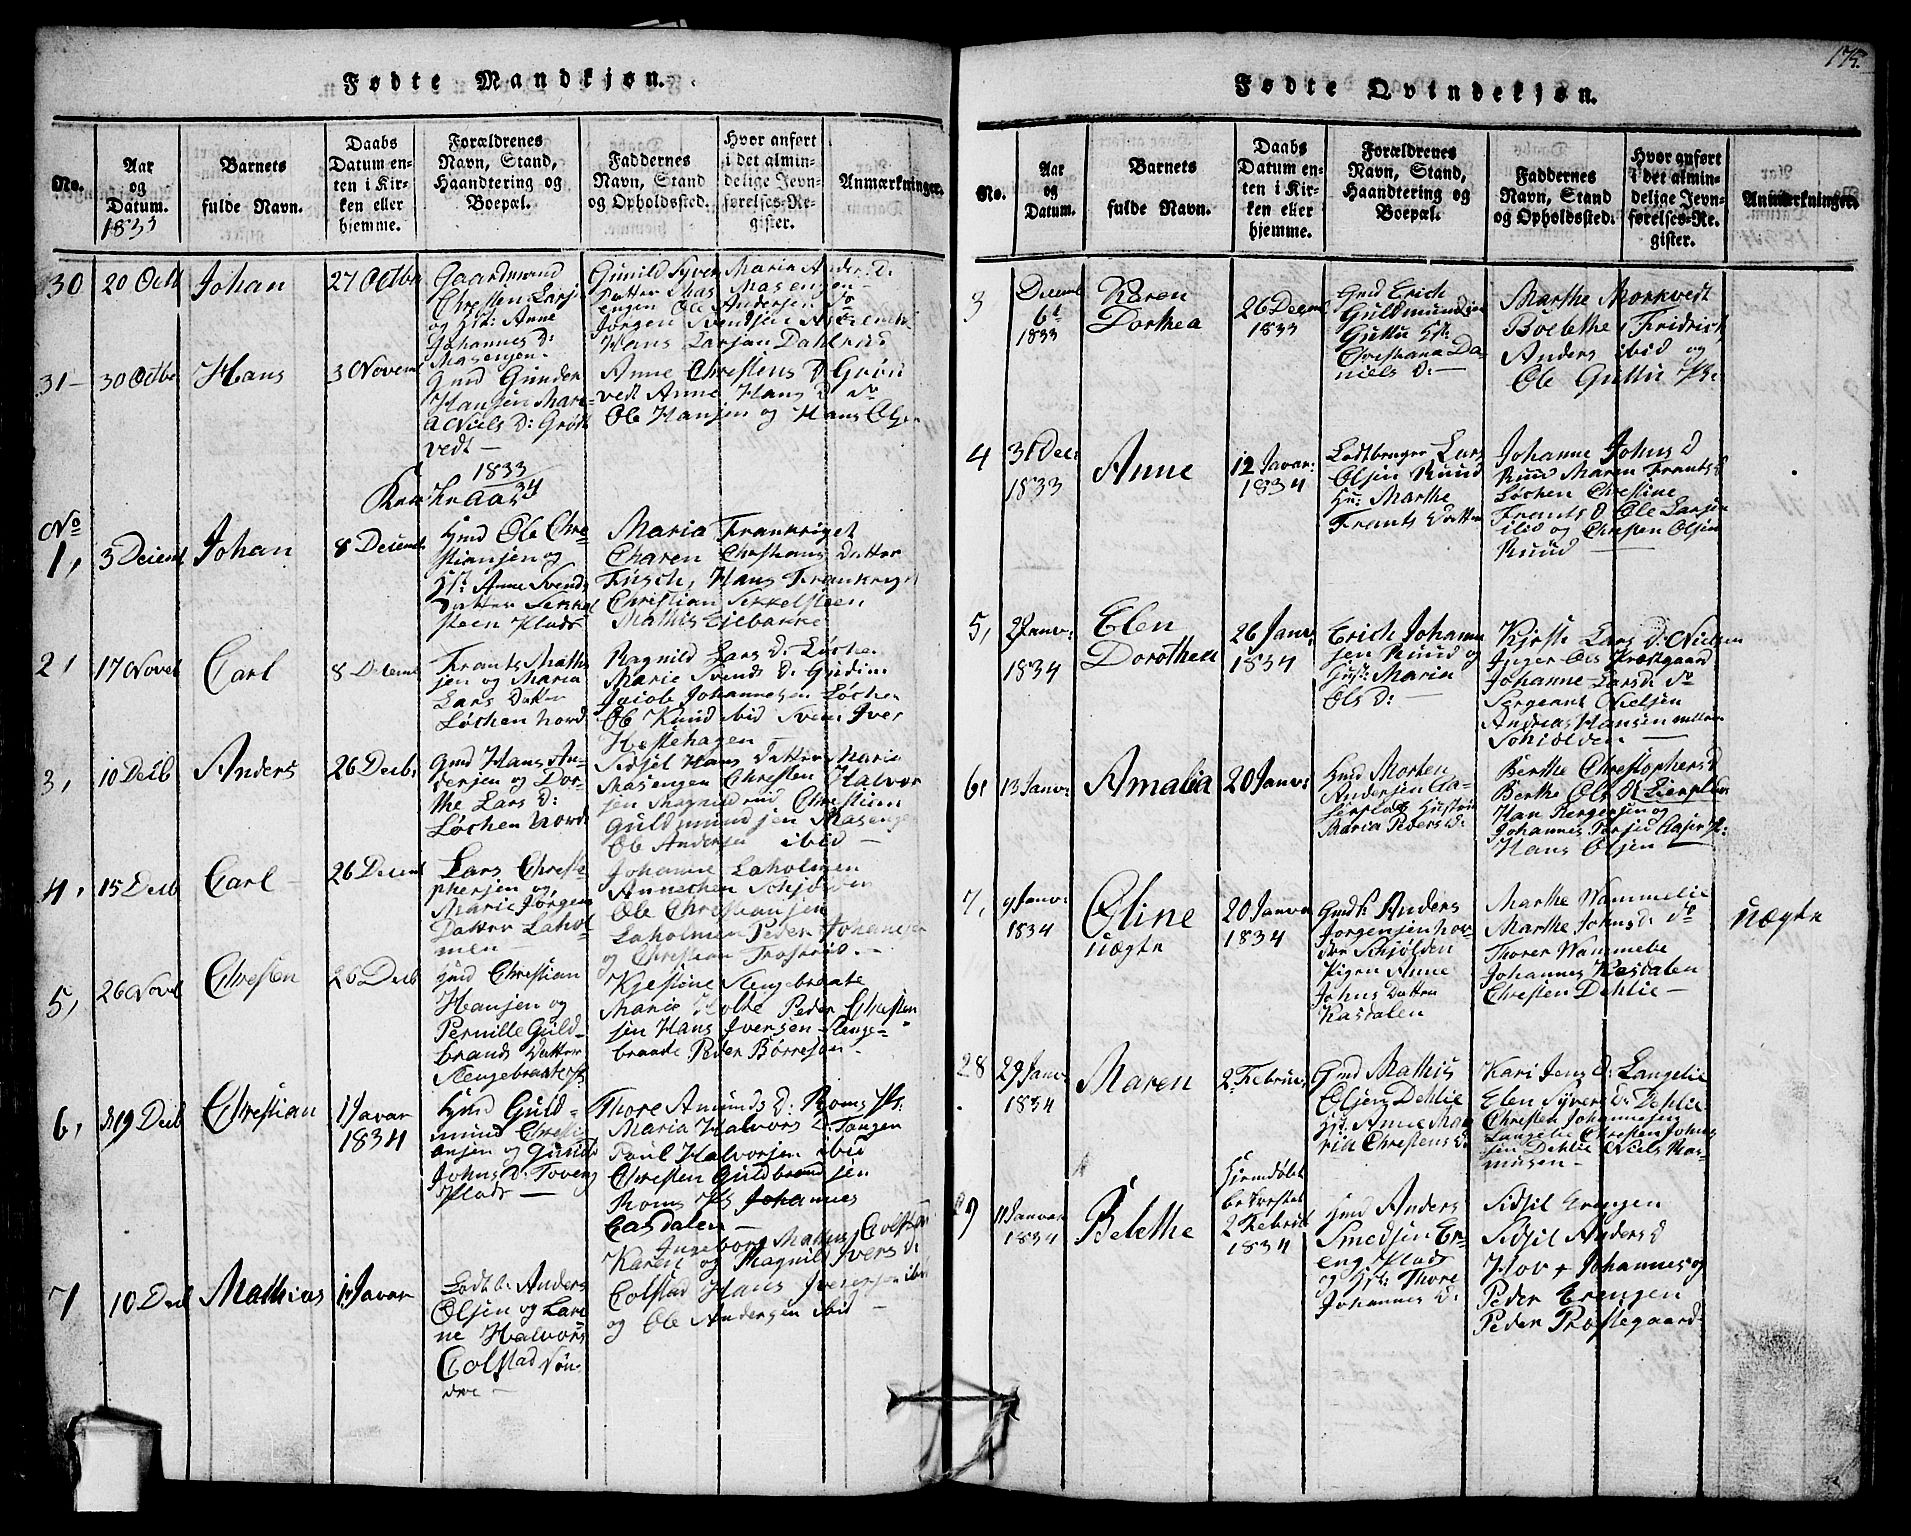 Fødte Mandkjøn.
No.
Aar
og
Datum.
1833
Barnets
fulde Navn.
Daabs
Datum en-
ten i Kir-
ken eller
hjemme.
Forældrenes
Navn, Stand,
Haandtering og
Boepæl.
Faddernes
Navn, Stand
og Opholdssted.
Hvor anført
i det almin-
delige Jevn-
førelses-Re-
gister.
Anmærkninger.
30
20 Octb
Johan
27 Octbr
Gaardmand
Christen Lars
og Hst: Anne
Johannes D:
Masengen
Gunild Syver Maria Ander D:
Datter Mas Masengen
engen Ole Andersen do
Jørgen Svendsen
Hans Larsen Dahlnes
31
30 Octbr
Hans
3 Novem
Gmd Gunder
Hansen Mari-
a Niels D: Grøt
vedt
Anne Christens D Grøn
vedt Anne Hans D do
Ole Hansen og Hans Olsen
1833
34
Kirke Aar
No
1,
3 Decemb
Johan
8 Decemb
Hmd Ole Chri-
stiansen og
Hst: Anne Svends
Datter Sekkel
steen Plads
Maria Frankriget
Charen Christians Datter
Fusch, Hans Frankrig
Christian Sekkelsteen
Mathis Eiebakke
2,
17 Noveb
Carl
8 Decemb
Frants Mathi
sen og Maria
Lars Datter
Løchen Nord
Ragnild Lars D: Løchen
Marie Svends D: Gudim
Jacob Johannesen Løchen
Ole Ruud ibid Svend Iver
Hestehagen
3,
10 Decb
Anders
26 Decb:
Gmd Hans An-
dersen og Dor-
the Lars D:
Løchen Nord
Sidsel Hans Datter Maria
Masengen Christen Halvor
sen Magnild ruud Christian
Guldmundsen Masengen
Ole Andersen ibid
4,
15 Decb
Carl
26 Decemb
Lars Christo
phersen og
Marie Jørgens
Datter Lahol-
men
Johanne Laholmen
Annechen Schjølden
Ole Christiansen
Laholmen Peder Johannesen
og Christian Trosterud
5,
26 Novb
Christen
26 Decb
Hmd Christian
Hansen og
Pernille Guld-
brands Datter
Slengebraate Pl
Kjestine Slengebraate
Maria Holte Peder Christen
sen Hans Iversen Slenge-
braate Peder Børresen
6,
19 Decb
Christian
1 Javar
1834
Hmd Guld-
mund Christi-
ansen og Gunild
Johns D: Toverg
Plads
Thore Amunds D: Roms Pl:
Maria Halvors D: Tangen
Poul Halvorsen ibid
Christen Guldbrandsen
Roms Pl Johannes
Casdalen
7
10 Decb
Mathias
1 Javar
Lodtb: Anders
Olsen og Lari-
ne Halvors
Colstad Søn-
dre
Ingeborg Mathis Colstad
Karen og Magnild Ivers D:
Colstad Hans Iversen ibid
og Ole Andersen ibid
175.
Fødte Qvindekjøn.
No.
Aar
og
Datum.
Barnets
fulde Navn.
Daabs
Datum en-
ten i Kir-
ken eller
hjemme.
Forældrenes
Navn, Stand,
Haandtering og
Boepæl.
Faddernes
Navn, Stand
og Opholdssted.
Hvor anført
i det almin-
delige Jevn-
førelses-Re-
gister.
Anmærkninger.
3
Decemb
6t
1833
Karen
Dorthea
26 Decemb
1833
Gmd Erich
Guldmundsen
Guttu Hst:
Christiana Da-
niels D:
Marthe Morkvedt
Boelethe Fridrich
Anders ibid og
Ole Guttu Pl:
4
31 Dec:
1833
Anne
12 Javar:
1834
Lodtbruger Lars
Olsen Ruud
Hu: Marthe
Frants Datter
Johanne Johns D
Ruud Maren Frants D
Løchen Christine
Frants D Ole Larsen
ibid og Christen Olsen
Ruud
5,
2 Janv:
1834
Elen
Dorothea
26 Janv:
1834
Erich Johann
sen Ruud og
Hust: Maria
Ols D:
Kjerste Lars D: Nielsen
Inger Ols Præstgaard
Johanne Lars D: do
Sergeant Nielsen
Andreas Hansen mellem
Schiolden
6,
13 Janv:
Amalia
20 Janv:
Hmd Morten
Andersen Ca-
serplads Hustru
Maria Peders D:
Berthe Christophers D
Berthe Ols D Lierplds
Hans Børgersen og
Johannes Persen Casir Pl:
Hans Olsen
7,
9 Janv:
1834
Oline
uægte
20 Janva
1834
Gmdf: Anders
Jørgensen Nor-
dre Schjølden
Pigen Anne
Johns Datter
Kasdalen
Marthe Wammelie
Marthe Johns D do
Thorer Wammelie
Johannes Kasdalen
Christen Dehlie
uægte
28
29 Janv:
1834
Maren
2 Februar
Gmd Mathis
Olsen Dehlie
Hst: Anne Ma-
rie Christens D:
Kari Jens D: Langelie
Elen Syvers D: Dehlie
Christen Johannesen
Langelie Christen Johne
sen Dehlie Niels Ras-
musen
29
11 Janvar
1834
Belethe
Hjemdøbt
bekræftet
2 Februar
1834
Hmd Anders
Smedsen Er-
eng Plads
og Hst: Thore
Johannes D:
Sidsil Erengen
Sidsil Anders D
Hov + Johannes og
Peder Erengen
Peder Præstegaard